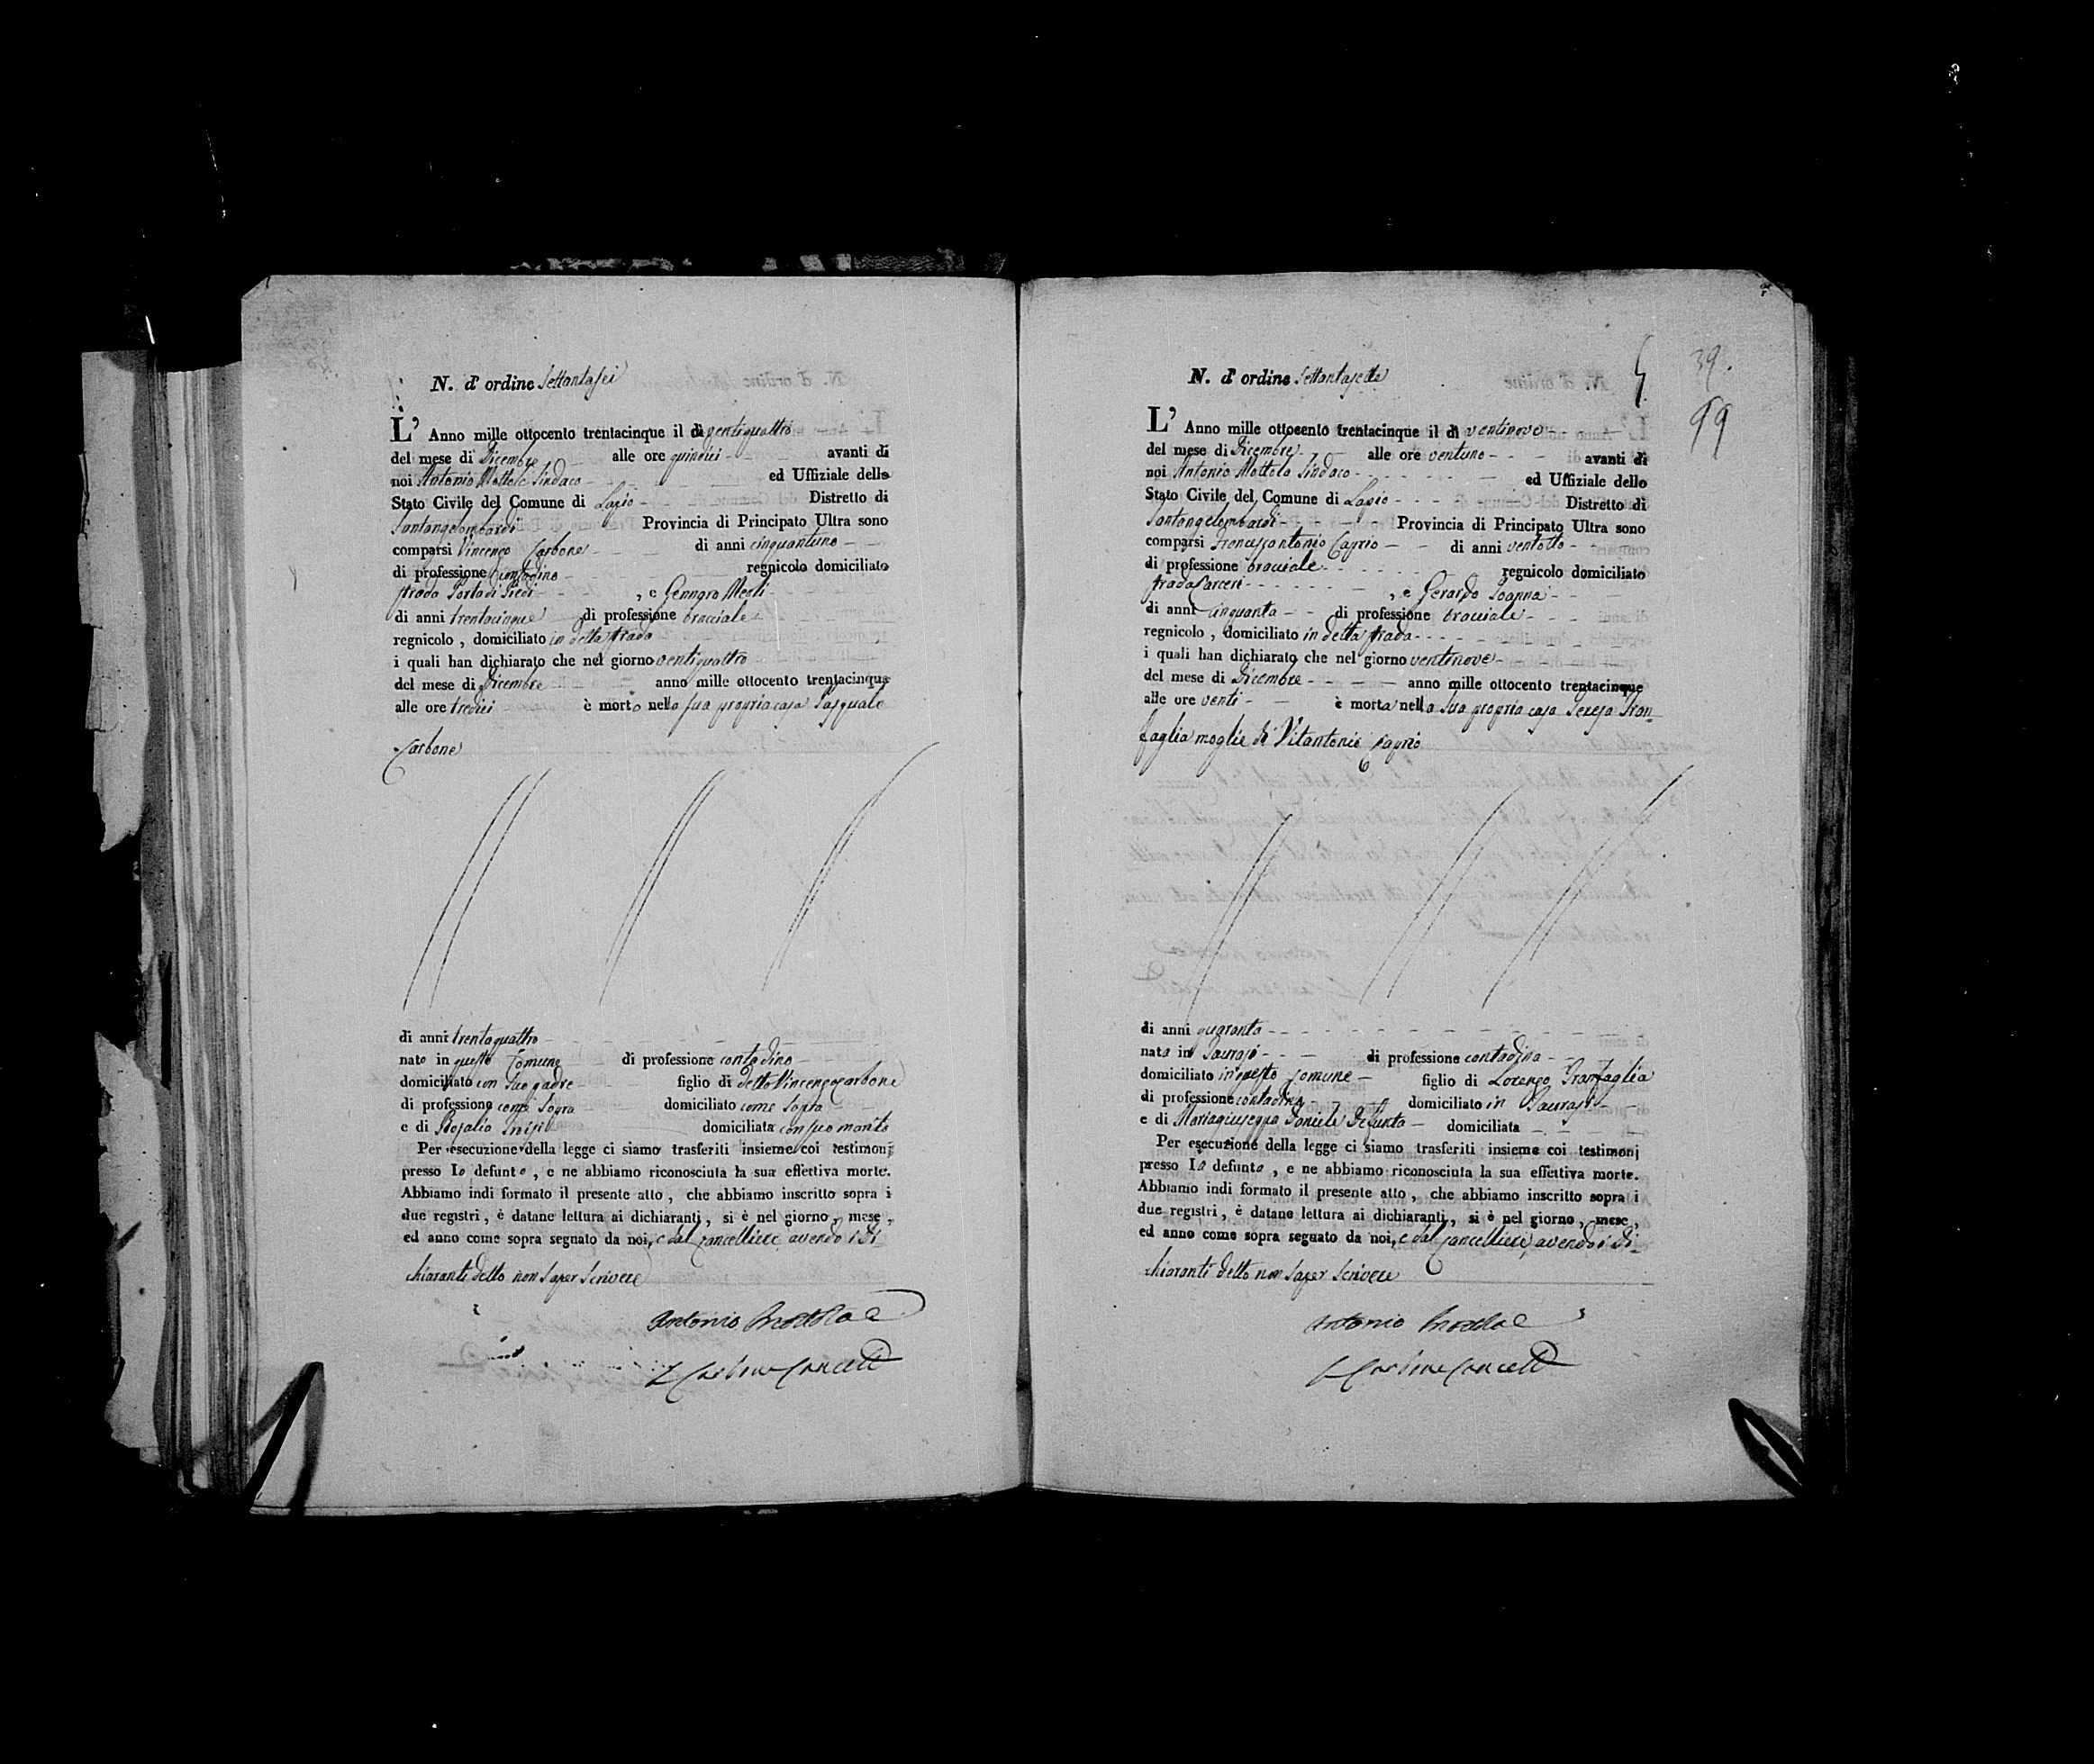 N. d' ordine Settantasei
L' Anno mille ottocento trentacinque il dì ventiquattro
del mese di Dicembre alle ore quindici avanti di
noi Antonio Mottola Sindaco ed Uffiziale dello
Stato Civile del Comune di Lapio Distretto di
Santangelombardi Provincia di Principato Ultra sono
comparsi Vincenzo Carbone di anni cinquantuno
di professione contadino regnicolo domiciliato
strada Porta di Piedi , e Gennaro Meoli
di anni trentacinque di professione bracciale
regnicolo , domiciliato in detta strada
i quali han dichiarato che nel giorno ventiquattro
del mese di Dicembre anno mille ottocento trentacinque
alle ore tredici è morto nella sua propria casa Pasquale
Carbone
di anni trentaquattro
nato in questo Comune di professione contadino
domiciliato con suo padre figlio di detto Vincenzo Carbone
di professione come sopra domiciliato come sopra
e di Rosalia domiciliata con suo marito
Per esecuzione della legge ci siamo trasferiti insieme coi testimonj
presso lo defunto , e ne abbiamo riconosciuta la sua effettiva morte.
Abbiamo indi formato il presente atto , che abbiamo inscritto sopra i
due registri , è datane lettura ai dichiaranti , si è nel giorno , mese ,
ed anno come sopra segnato da noi, e dal Cancelliere, avendo i di
chiaranti detto non saper scrivere
Antonio Mottola
Carbone Cancell
39.
99
N. d' ordine Settantasette
L' Anno mille ottocento trentacinque il dì ventinove
del mese di Dicembre alle ore ventuno avanti di
noi Antonio Mottola Sindaco ed Uffiziale dello
Stato Civile del Comune di Lapio Distretto di
Santangelombardi Provincia di Principato Ultra sono
comparsi Francescantonio Caprio di anni ventotto
di professione bracciale regnicolo domiciliato
strada Carceri , e Gerardo Ioanna
di anni cinquanta di professione bracciale
regnicolo , domiciliato in detta strada
i quali han dichiarato che nel giorno ventinove
del mese di Dicembre anno mille ottocento trentacinque
alle ore venti è morta nella sua propria casa Teresa Tran
faglia moglie di Vitantonio Caprio
di anni quaranta
nata in Taurasi di professione contadina
domiciliato in questo Comune figlio di Lorenzo Tranfaglia
di professione contadino domiciliato in Taurasi
e di Mariagiuseppa Daniele Defunta domiciliata
Per esecuzione della legge ci siamo trasferiti insieme coi testimonj
presso la defunta , e ne abbiamo riconosciuta la sua effettiva morte.
Abbiamo indi formato il presente atto , che abbiamo inscritto sopra i
due registri , è datane lettura ai dichiaranti , si è nel giorno , mese ,
ed anno come sopra segnato da noi, e dal Cancelliere, avendo i di
chiaranti detto non saper scrivere
Antonio Mottola
Carbone Cancell